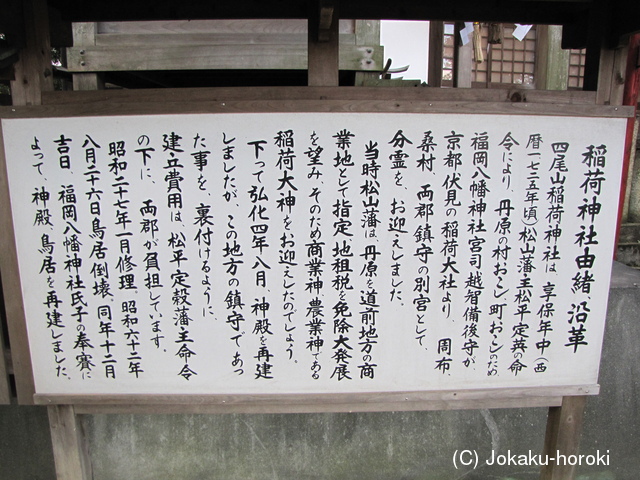 稲荷神社由緒、沿革
四尾山稲荷神社は、享保年中(西
暦一七二五年頃)松山藩主松平定英の命
令により、丹原の村おこし、町おこしのため
福岡八幡神社宮司越智備後守が、
京都伏見の稲荷大社より、周布、
桑村、両郡鎮守の別宮として、
分霊を、お迎えしました。
当時松山藩は、丹原を道前地方の商
業地として指定、地租税を免除大発展
を望み、そのため商業神、農業神である
稲荷大神をお迎えしたのでしょう。
下って弘化四年八月、神殿を再建
しましたが、この地方の鎮守であっ
た事を、裏付けるように、
建立費用は、松平定穀藩主命令
の下に、両郡が負担しています。
昭和二十七年一月修理、昭和六十二年
八月二十六日鳥居倒壊、同年十二月
吉日、福岡八幡神社氏子の奉賽に
よって、神殿、鳥居を再建しました。
(C) Jokaku-horoki